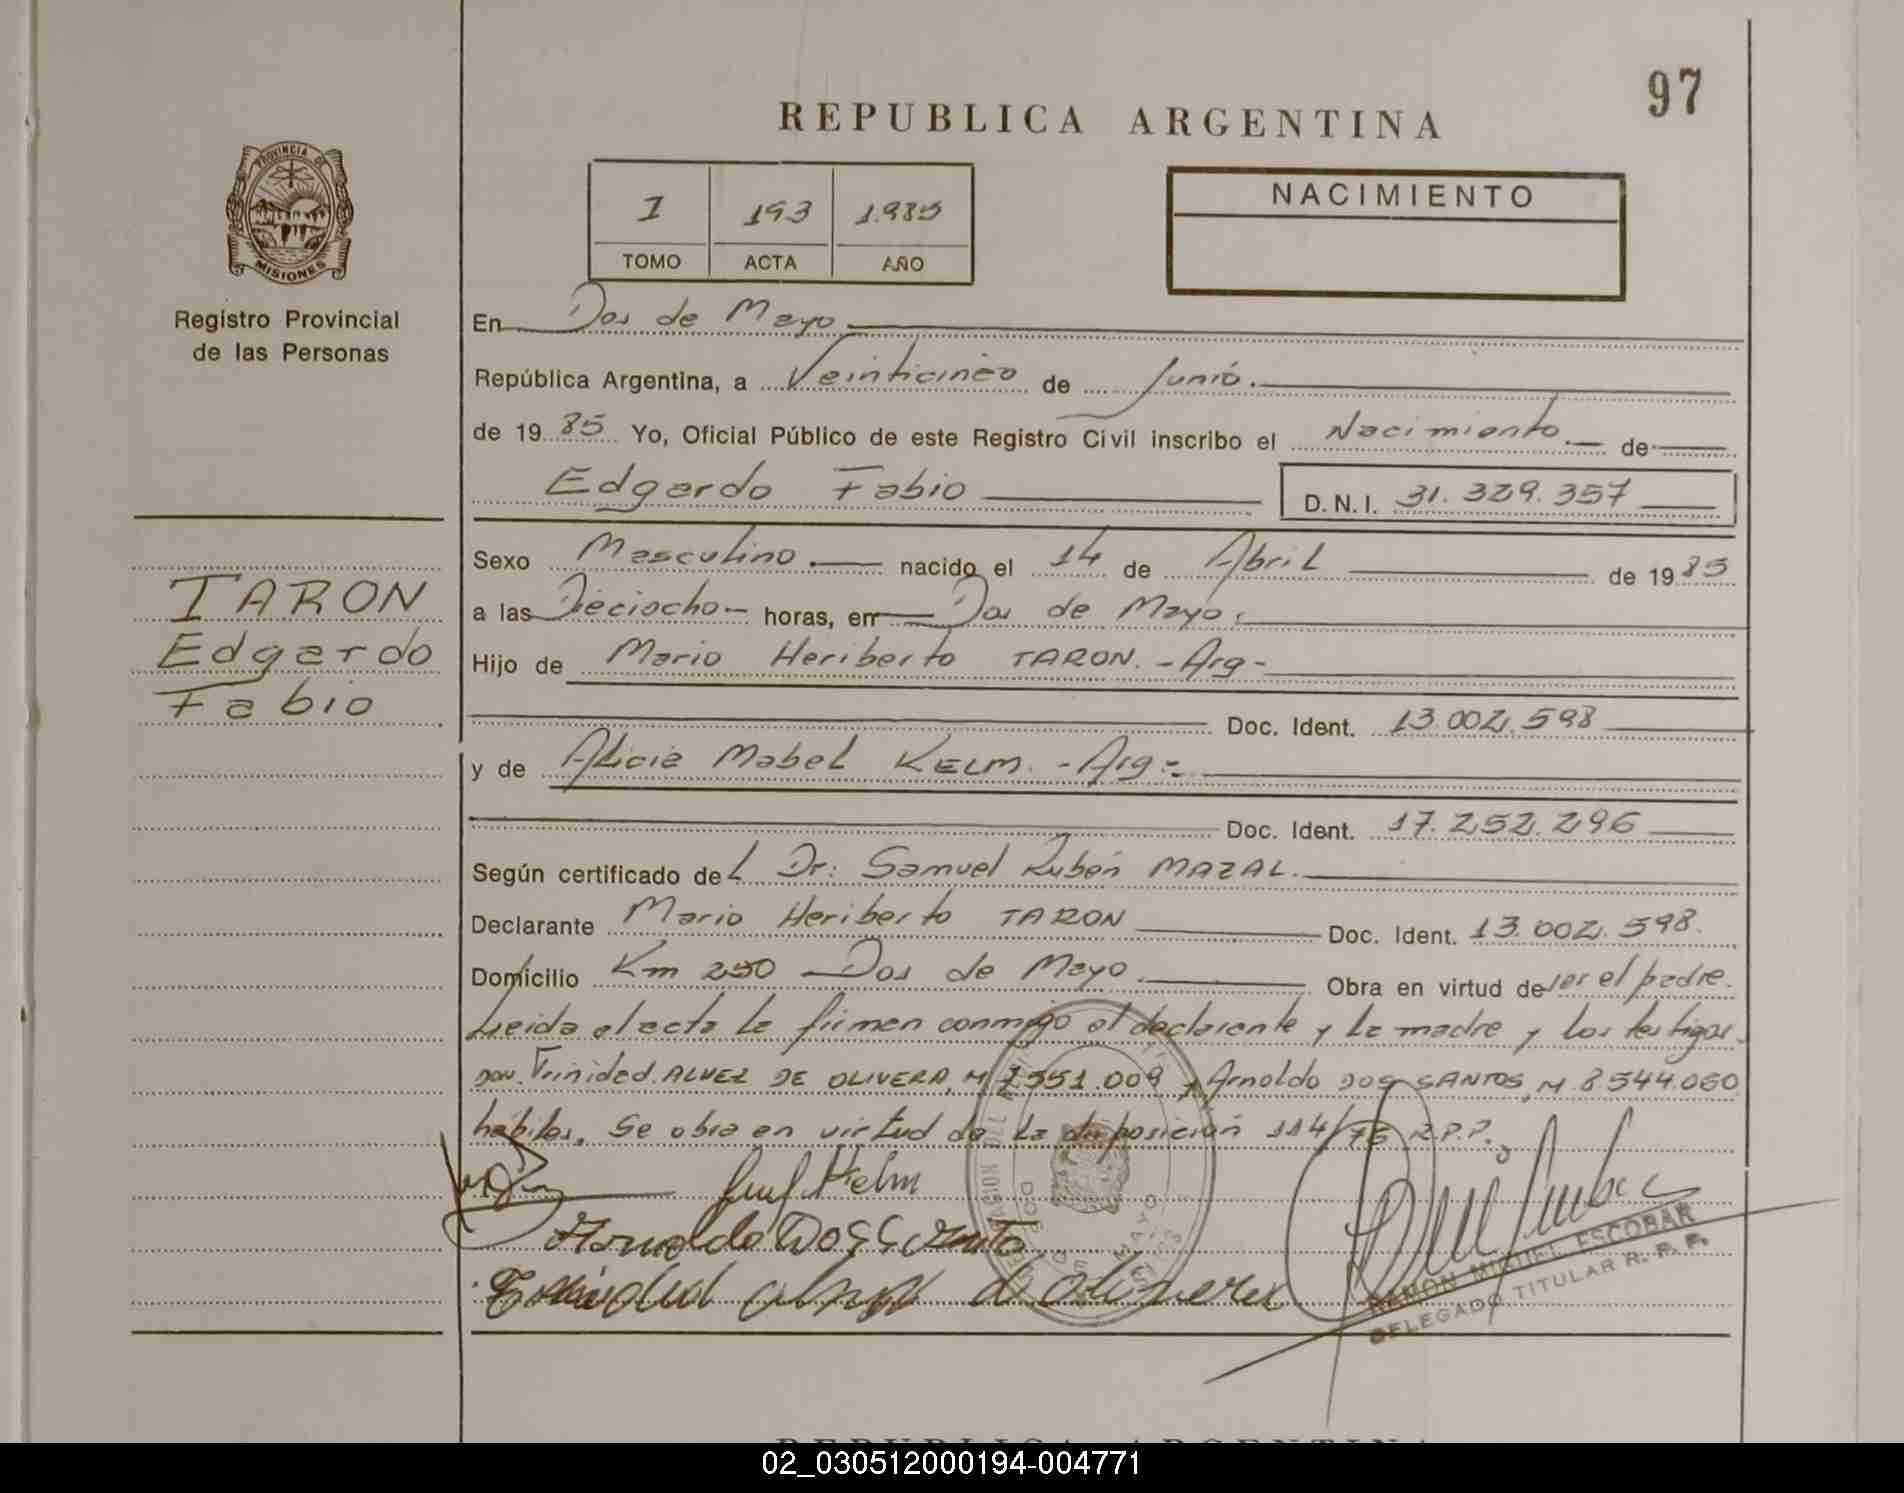 97
REPUBLICA ARGENTINA
PROVINCIA DE
MISIONES
Registro Provincial
de las Personas
I 193 1.985
TOMO ACTA AÑO
NACIMIENTO
En Dos de Mayo
República Argentina, a Veinticinco de Junio.
de 1985 Yo, Oficial Público de este Registro Civil inscribo el Nacimiento.— de
Edgardo Fabio D.N.I. 31.329.357
TARON
Edgardo
Fabio
Sexo Masculino.— nacido el 14 de Abril de 1985
a las Dieciocho— horas, en Dos de Mayo.
Hijo de Mario Heriberto TARON. -Arg-
Doc. Ident. 13.002.598
y de Alicia Mabel KELM. -Arg-
Doc. Ident. 17.252.296
Según certificado del Dr: Samuel Rubén MAZAL.
Declarante Mario Heriberto TARON Doc. Ident. 13.002.598.
Domicilio Km 250 Dos de Mayo. Obra en virtud de ser el padre.
Leida el acta la firman conmigo el declarante y la madre y los testigos
don. Trinidad ALVEZ DE OLIVERA, M 7.551.009 y Arnoldo DOS SANTOS, M 8.544.060
hábiles. Se obra en virtud de la disposición 114/75 R.P.P.
Arnoldo Dos Santo
Trinidad alvez de oliveira
RAMON MIGUEL ESCOBAR
DELEGADO TITULAR R. P. P.
REPUBLICA ARGENTINA
02_030512000194-004771